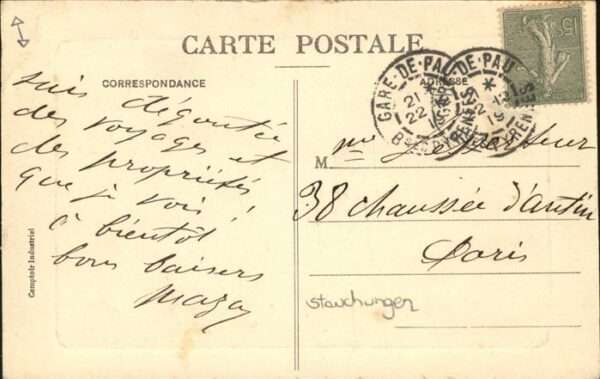 CARTE POSTALE
CORRESPONDANCE
ADRESSE
suis dégoutée
des voyages et
des propriétés
que je vois !
à bientôt
bons baisers
GARE-DE-PAU
21
22
12
GARE-DE-PAU
15c
M
38 chaussée d'antin
Paris
Stauchungen
Comptoir Industriel